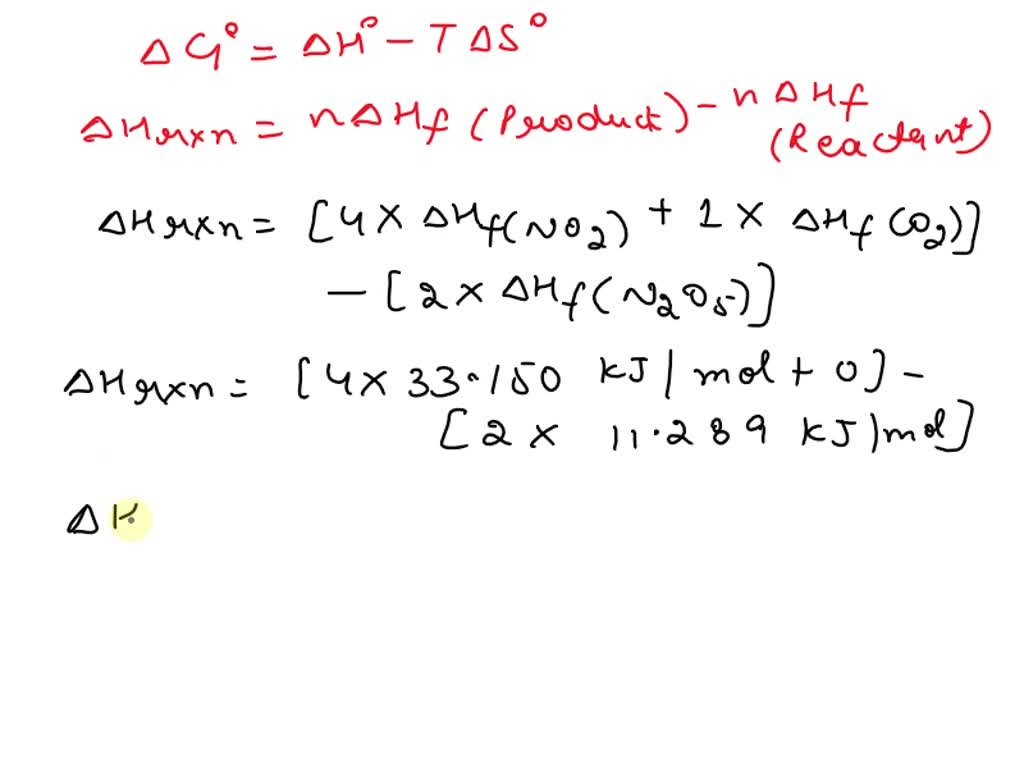 ΔG° = ΔH° - TΔS°
ΔHrxn = nΔHf (Product) - nΔHf (Reactant)
ΔHrxn = [4 × ΔHf(NO2) + 1 × ΔHf (O2)]
- [2 × ΔHf(N2O5)]
ΔHrxn = [4 × 33.150 kJ/mol + 0] -
[2 × 11.289 kJ/mol]
Δ